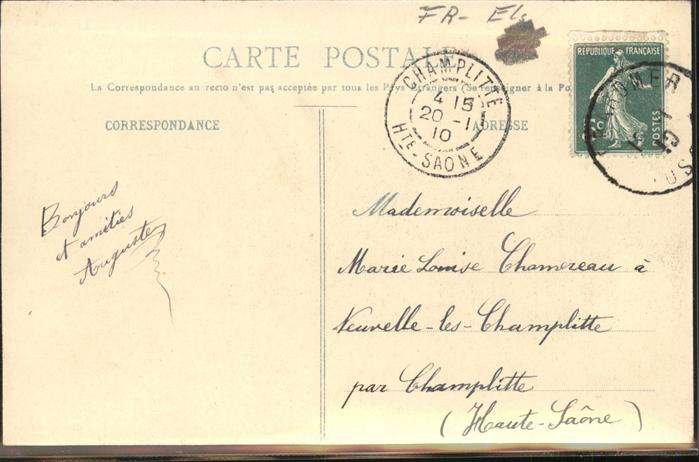 FR- El
CARTE POSTALE
La Correspondance au recto n'est pas acceptée par tous les Pays Étrangers (Se renseigner à la Po
CORRESPONDANCE
ADRESSE
CHAMPLITTE
4 15
20 -11
10
HTE-SAONE
REPUBLIQUE FRANÇAISE
POSTES
Bonjours
et amitiés
Auguste
Mademoiselle
Marie Louise Chamereau à
Neuvelle-les-Champlitte
par Champlitte
(Haute-Saône)